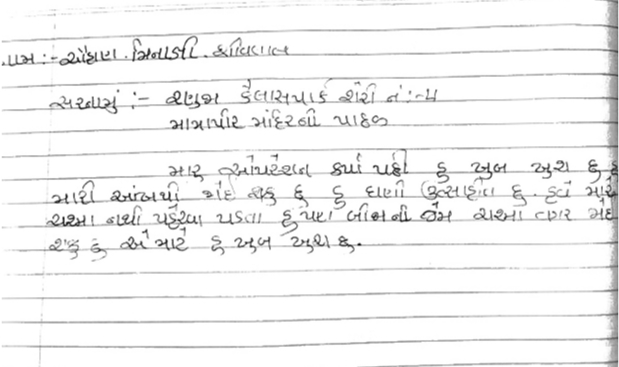 નામ :- ચૌહાણ . મિનાક્ષી .
સરનામું :- કૈલાસપાર્ક શેરી નં :- ૫
માત્રાપીર મંદિરની પાછળ
મારુ ઓપરેશન કર્યા પછી હુ ખુબ ખુશ છુ હુ
મારી આંખથી જોઈ શકુ છુ હુ ઘણી ઉત્સાહીત છુ . હવે મારે
ચશ્મા નથી પહેરવા પડતા હું પણ બીજાની જેમ ચશ્મા વગર જોઈ
શકુ છુ એ માટે હુ ખુબ ખુશ છુ .